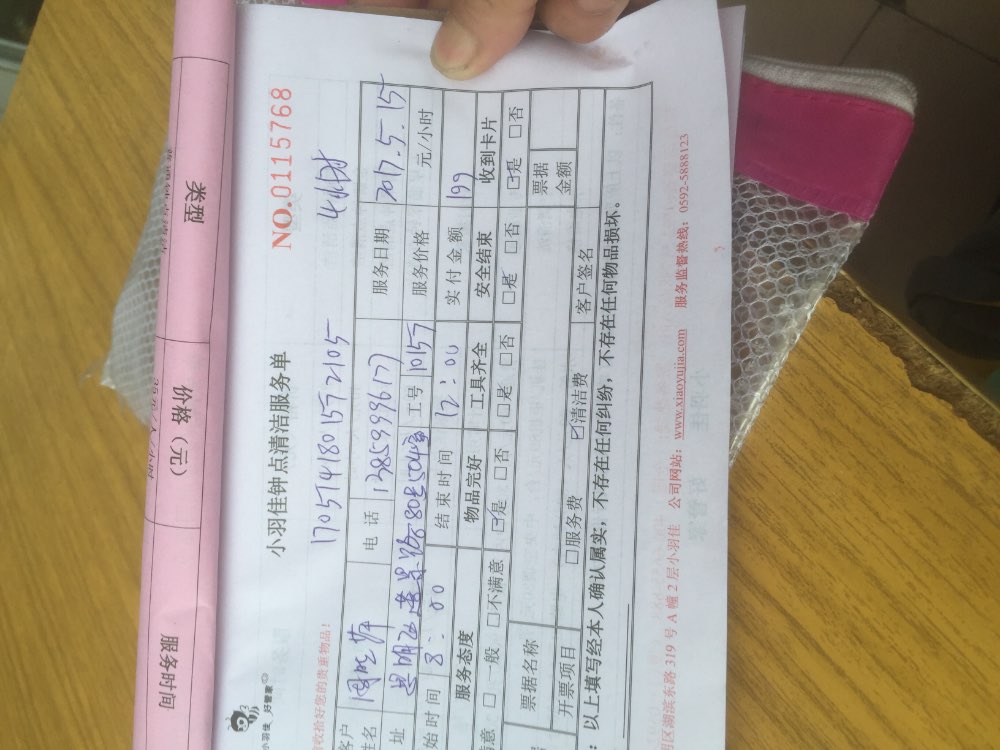 类型
价格（元）
服务时间
小羽佳 好管家
小羽佳钟点清洁服务单
NO.0115768
收拾好您的贵重物品！
1705141801572105
4小时
客户
姓名
电 话
13859996177
服务日期
2017.5.15
址
80号504室
工号
1015
服务价格
元/小时
始时间
8:00
结束时间
12:00
实付金额
199
服务态度
物品完好
工具齐全
安全结束
收到卡片
满意 □一般 □不满意
☑是 □否
□是 □否
□是 □否
☑是 □否
票据名称
票据金额
开票项目
□服务费
☑清洁费
客户签名
：以上填写经本人确认属实，不存在任何纠纷，不存在任何物品损坏。
明区湖滨东路 319 号 A 幢 2 层小羽佳 公司网站：www.xiaoyujia.com 服务监督热线：0592-5888123